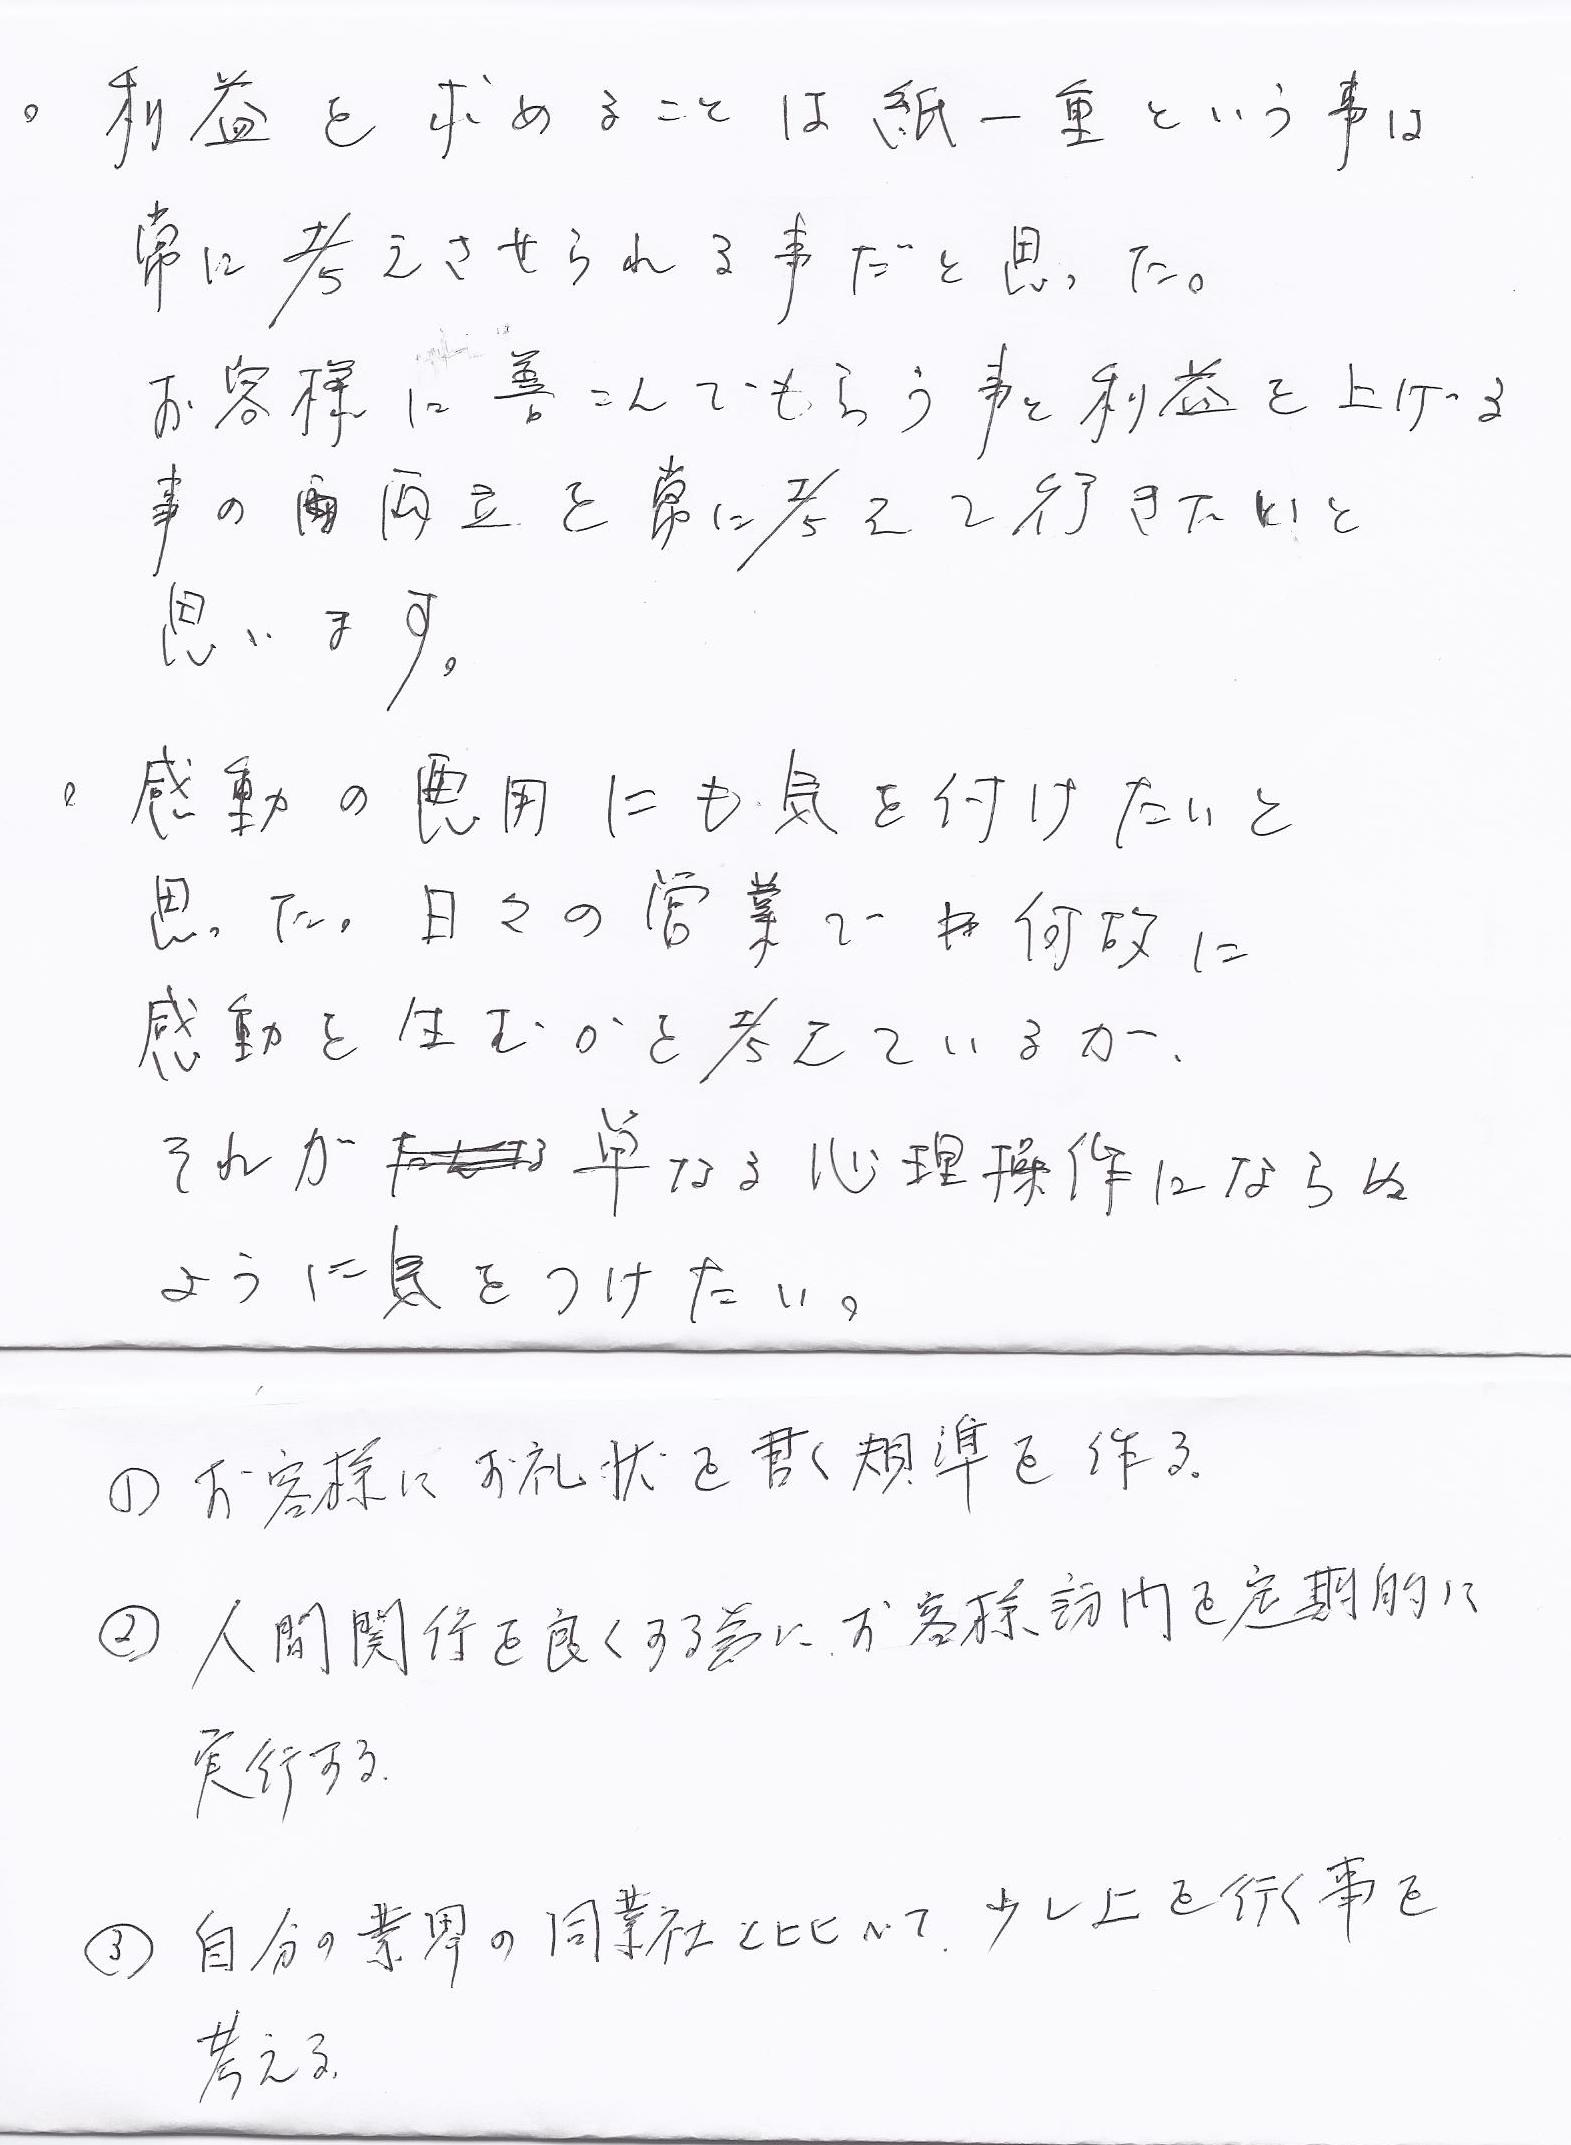 。利益を求めることは紙一重という事は
常に考えさせられる事だと思った。
お客様に善こんでもらう事と利益を上げる
事の両立を常に考えて行きたいと
思います。
。感動の悪用にも気を付けたいと
思った。日々の営業でも何故に
感動を生むかを考えているが、
それが単なる心理操作にならぬ
ように気をつけたい。
① お客様にお礼状を書く規準を作る。
② 人間関行を良くする為に、お客様訪内を定期的に
実行する。
③ 自分の業界の同業社と比べて、少し上を行く事を
考える。